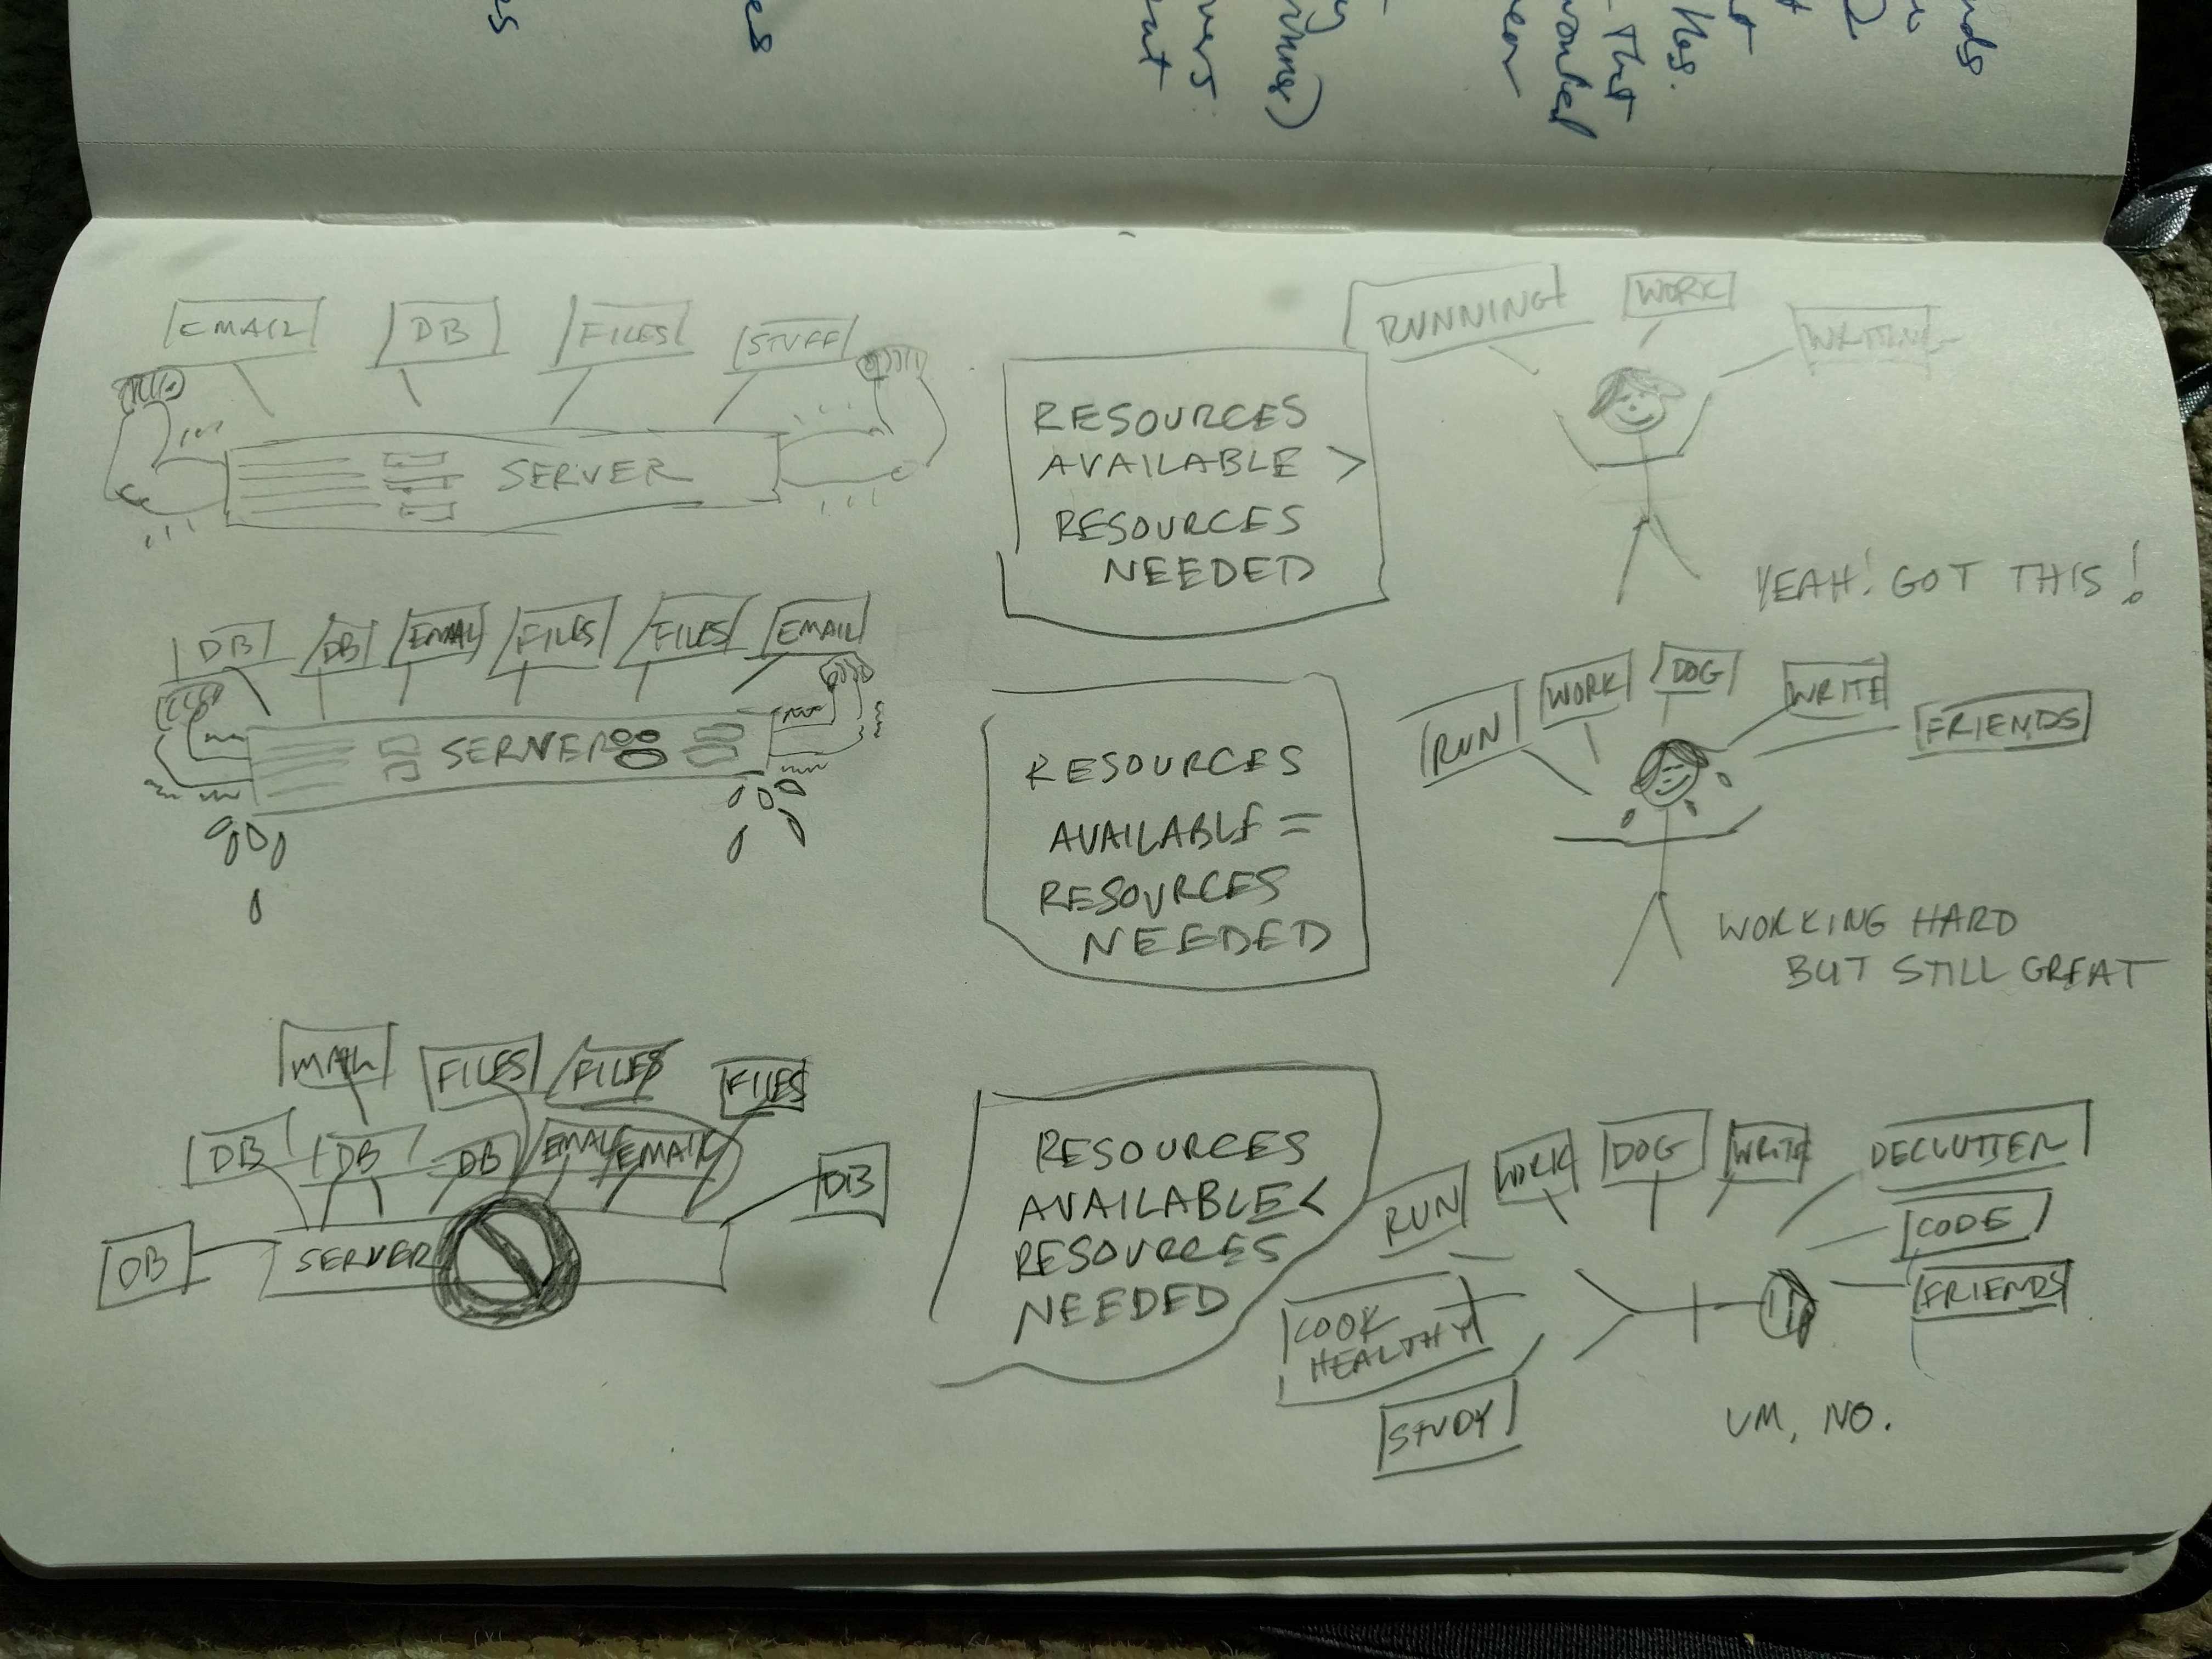 EMAIL DB FILES STUFF
SERVER
RESOURCES
AVAILABLE >
RESOURCES
NEEDED
RUNNING WORK WRITING
YEAH! GOT THIS!
DB DB EMAIL FILES FILES EMAIL
SERVER
RESOURCES
AVAILABLE =
RESOURCES
NEEDED
RUN WORK DOG WRITE FRIENDS
WORKING HARD
BUT STILL GREAT
MAIL FILES FILES FILES
DB DB DB EMAIL EMAIL DB
DB SERVER
RESOURCES
AVAILABLE <
RESOURCES
NEEDED
RUN WORK DOG WRITE DECLUTTER
CODE
FRIENDS
COOK
HEALTHY
STUDY
UM, NO.
that